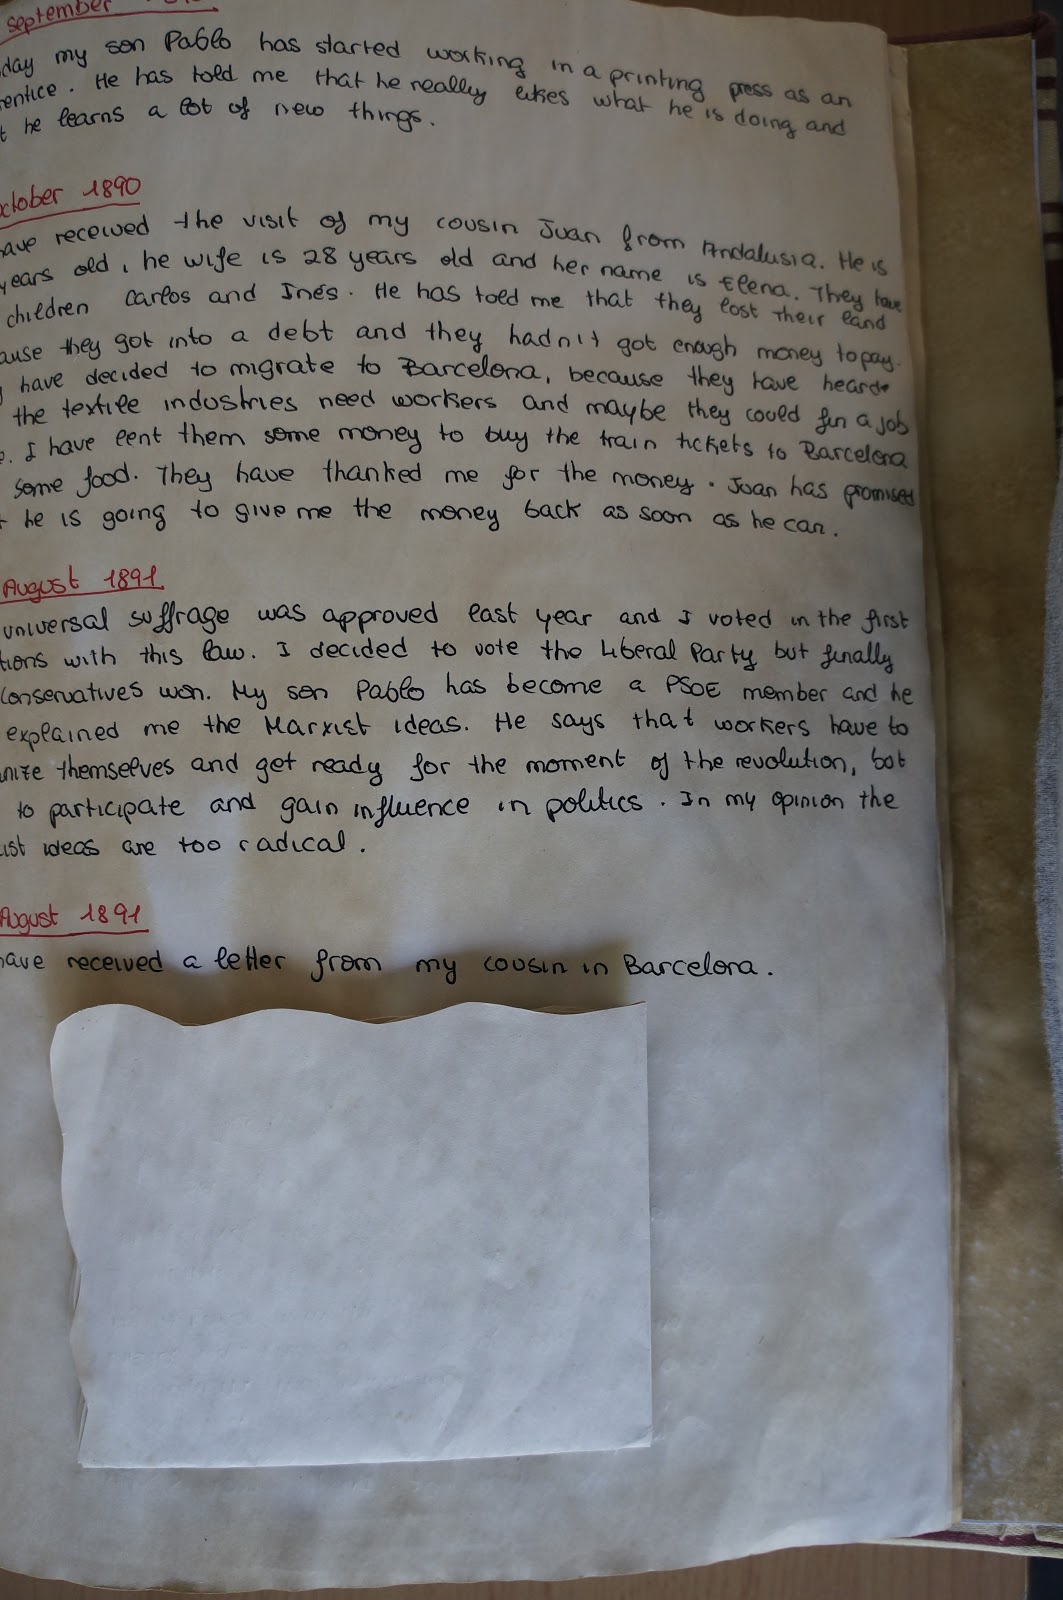 September
day my son Pablo has started working in a printing press as an
rentice. He has told me that he really likes what he is doing and
t he learns a lot of new things.
ctober 1890
have received the visit of my cousin Juan from Andalusia. He is
years old, he wife is 28 years old and her name is Elena. They have
children Carlos and Inés. He has told me that they lost their land
ause they got into a debt and they hadn't got enough money to pay.
have decided to migrate to Barcelona, because they have heard
the textile industries need workers and maybe they could fin a job
e. I have lent them some money to buy the train tickets to Barcelona
some food. They have thanked me for the money. Juan has promised
t he is going to give me the money back as soon as he can.
August 1891
universal suffrage was approved last year and I voted in the first
tions with this law. I decided to vote the Liberal Party but finally
conservatives won. My son Pablo has become a PSOE member and he
explained me the Marxist ideas. He says that workers have to
nize themselves and get ready for the moment of the revolution, bot
to participate and gain influence in politics. In my opinion the
ist ideas are too radical.
August 1891
have received a letter from my cousin in Barcelona.